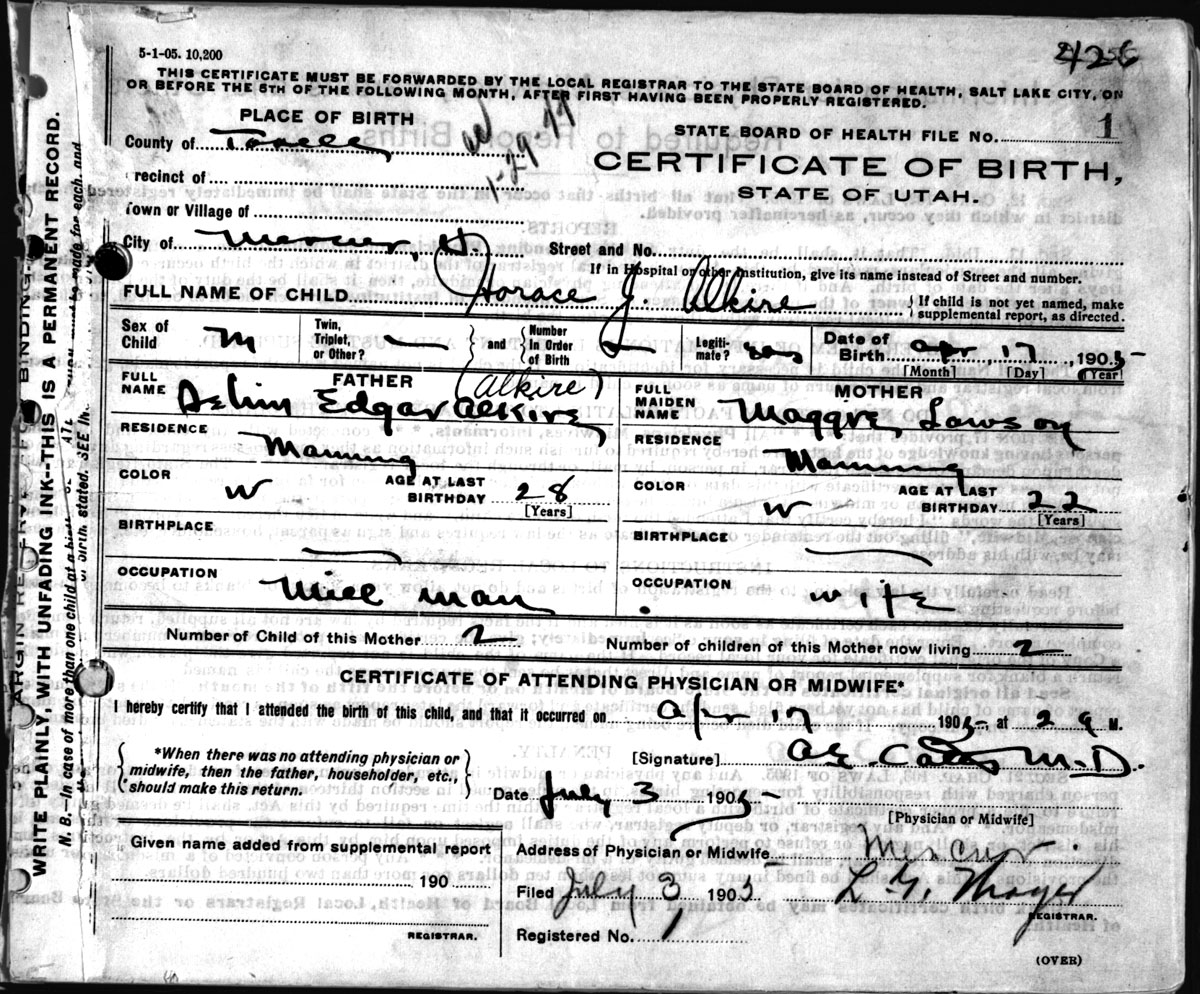 5-1-05. 10,200
THIS CERTIFICATE MUST BE FORWARDED BY THE LOCAL REGISTRAR TO THE STATE BOARD OF HEALTH, SALT LAKE CITY, ON
OR BEFORE THE 5TH OF THE FOLLOWING MONTH, AFTER FIRST HAVING BEEN PROPERLY REGISTERED.
PLACE OF BIRTH
STATE BOARD OF HEALTH FILE NO. 1
County of Tooele
CERTIFICATE OF BIRTH,
STATE OF UTAH.
recinct of
Town or Village of
City of Mercur, U. Street and No.
If in Hospital or other Institution, give its name instead of Street and number.
FULL NAME OF CHILD Horace J. Alkire } If child is not yet named, make
supplemental report, as directed.
Sex of Child M Twin, Triplet, or Other? — and Number in Order of Birth Legitimate? yes Date of Birth Apr, 17, 1905
[Month] [Day] [Year]
FATHER (Alkire) MOTHER
FULL NAME Edgar Alkire FULL MAIDEN NAME Maggie Lawson
RESIDENCE Manning RESIDENCE Manning
COLOR W AGE AT LAST BIRTHDAY 28 [Years] COLOR W AGE AT LAST BIRTHDAY 22 [Years]
BIRTHPLACE — BIRTHPLACE —
OCCUPATION Mill man OCCUPATION wife
Number of Child of this Mother 2 Number of children of this Mother now living 2
CERTIFICATE OF ATTENDING PHYSICIAN OR MIDWIFE*
I hereby certify that I attended the birth of this child, and that it occurred on Apr 17 1905 at 2 a M.
*When there was no attending physician or
midwife, then the father, householder, etc.,
should make this return.
[Signature] M.D.
Date July 3 1905
[Physician or Midwife]
Given name added from supplemental report
190
REGISTRAR.
Address of Physician or Midwife Mercur
Filed July 3, 1905 L. G. Thayer
REGISTRAR.
Registered No. 1
(OVER)
WRITE PLAINLY, WITH UNFADING INK--THIS IS A PERMANENT RECORD.
N. B.--In case of more than one child at a